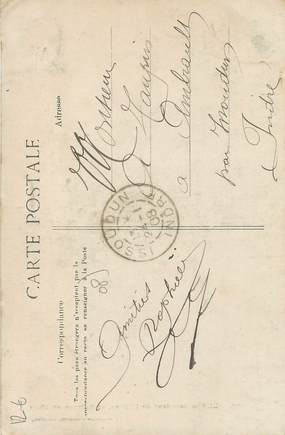 CARTE POSTALE
Correspondance
Tous les pays étrangers n'acceptent pas la
correspondance au recto se renseigner à la Poste
Adresse
Amitiés
Raphaël
Monsieur
à Ambrault
par Issoudun
Indre
ISSOUDUN
INDRE
08
(80
12-6